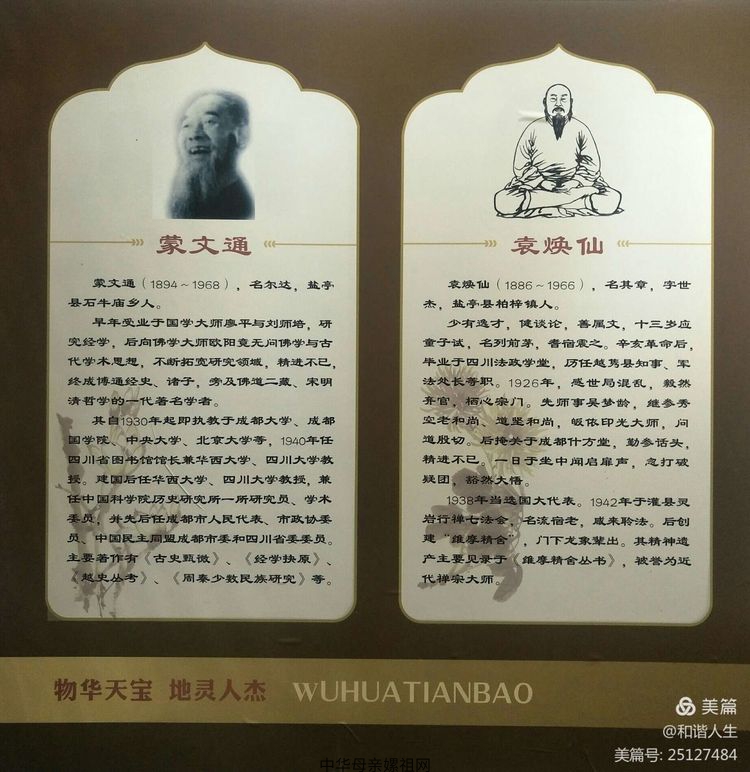 蒙文通
蒙文通（1894～1968），名尔达，盐亭
县石牛庙乡人。
早年受业于国学大师廖平与刘师培，研
究经学，后向佛学大师欧阳竟无问佛学与古
代学术思想，不断拓宽研究领域，精进不已，
终成博通经史、诸子，旁及佛道二藏、宋明
清哲学的一代著名学者。
其自1930年起即执教于成都大学、成都
国学院、中央大学、北京大学等，1940年任
四川省图书馆馆长兼华西大学、四川大学教
授。建国后任华西大学、四川大学教授，兼
任中国科学院历史研究所一所研究员、学术
委员，并先后任成都市人民代表、市政协委
员、中国民主同盟成都市委和四川省委委员。
主要著作有《古史甄微》、《经学抉原》、
《越史丛考》、《周秦少数民族研究》等。
袁焕仙
袁焕仙（1886～1966），名其章，字世
杰，盐亭县柏梓镇人。
少有逸才，健谈论，善属文，十三岁应
童子试，名列前茅，耆宿震之。辛亥革命后，
毕业于四川法政学堂，历任越嶲县知事、军
法处长等职。1926年，感世局混乱，毅然
弃官，栖心宗门，先师事吴梦龄，继参秀
空老和尚、道坚和尚，皈依印光大师，问
道殷切。后掩关于成都什方堂，勤参话头，
精进不已。一日于坐中闻启扉声，忽打破
疑团，豁然大悟。
1938年当选国大代表。1942年于灌县灵
岩行禅七法会，名流宿老，咸来聆法。后创
建“维摩精舍”，门下龙象辈出。其精神遗
产主要见录于《维摩精舍丛书》，被誉为近
代禅宗大师。
物华天宝 地灵人杰 WUHUATIANBAO
美篇
@和谐人生
美篇号: 25127484
中华母亲嫘祖网